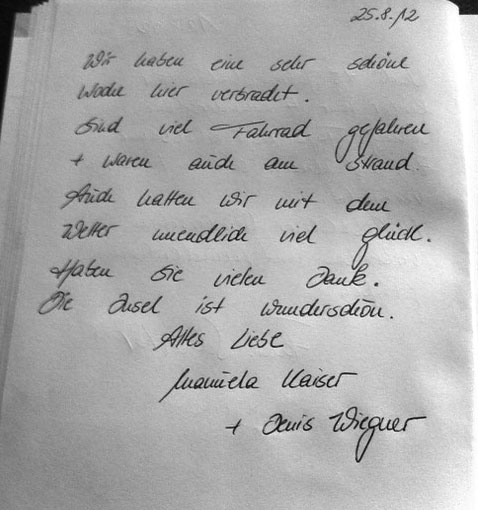 25.8.12
Wir haben eine sehr schöne
Woche hier verbracht.
Sind viel Fahrrad gefahren
+ waren auch am Strand.
Auch hatten wir mit dem
Wetter unendlich viel Glück.
Haben Sie vielen Dank.
Die Insel ist wunderschön.
Alles Liebe
Manuela Kaiser
+ Denis Wiegner